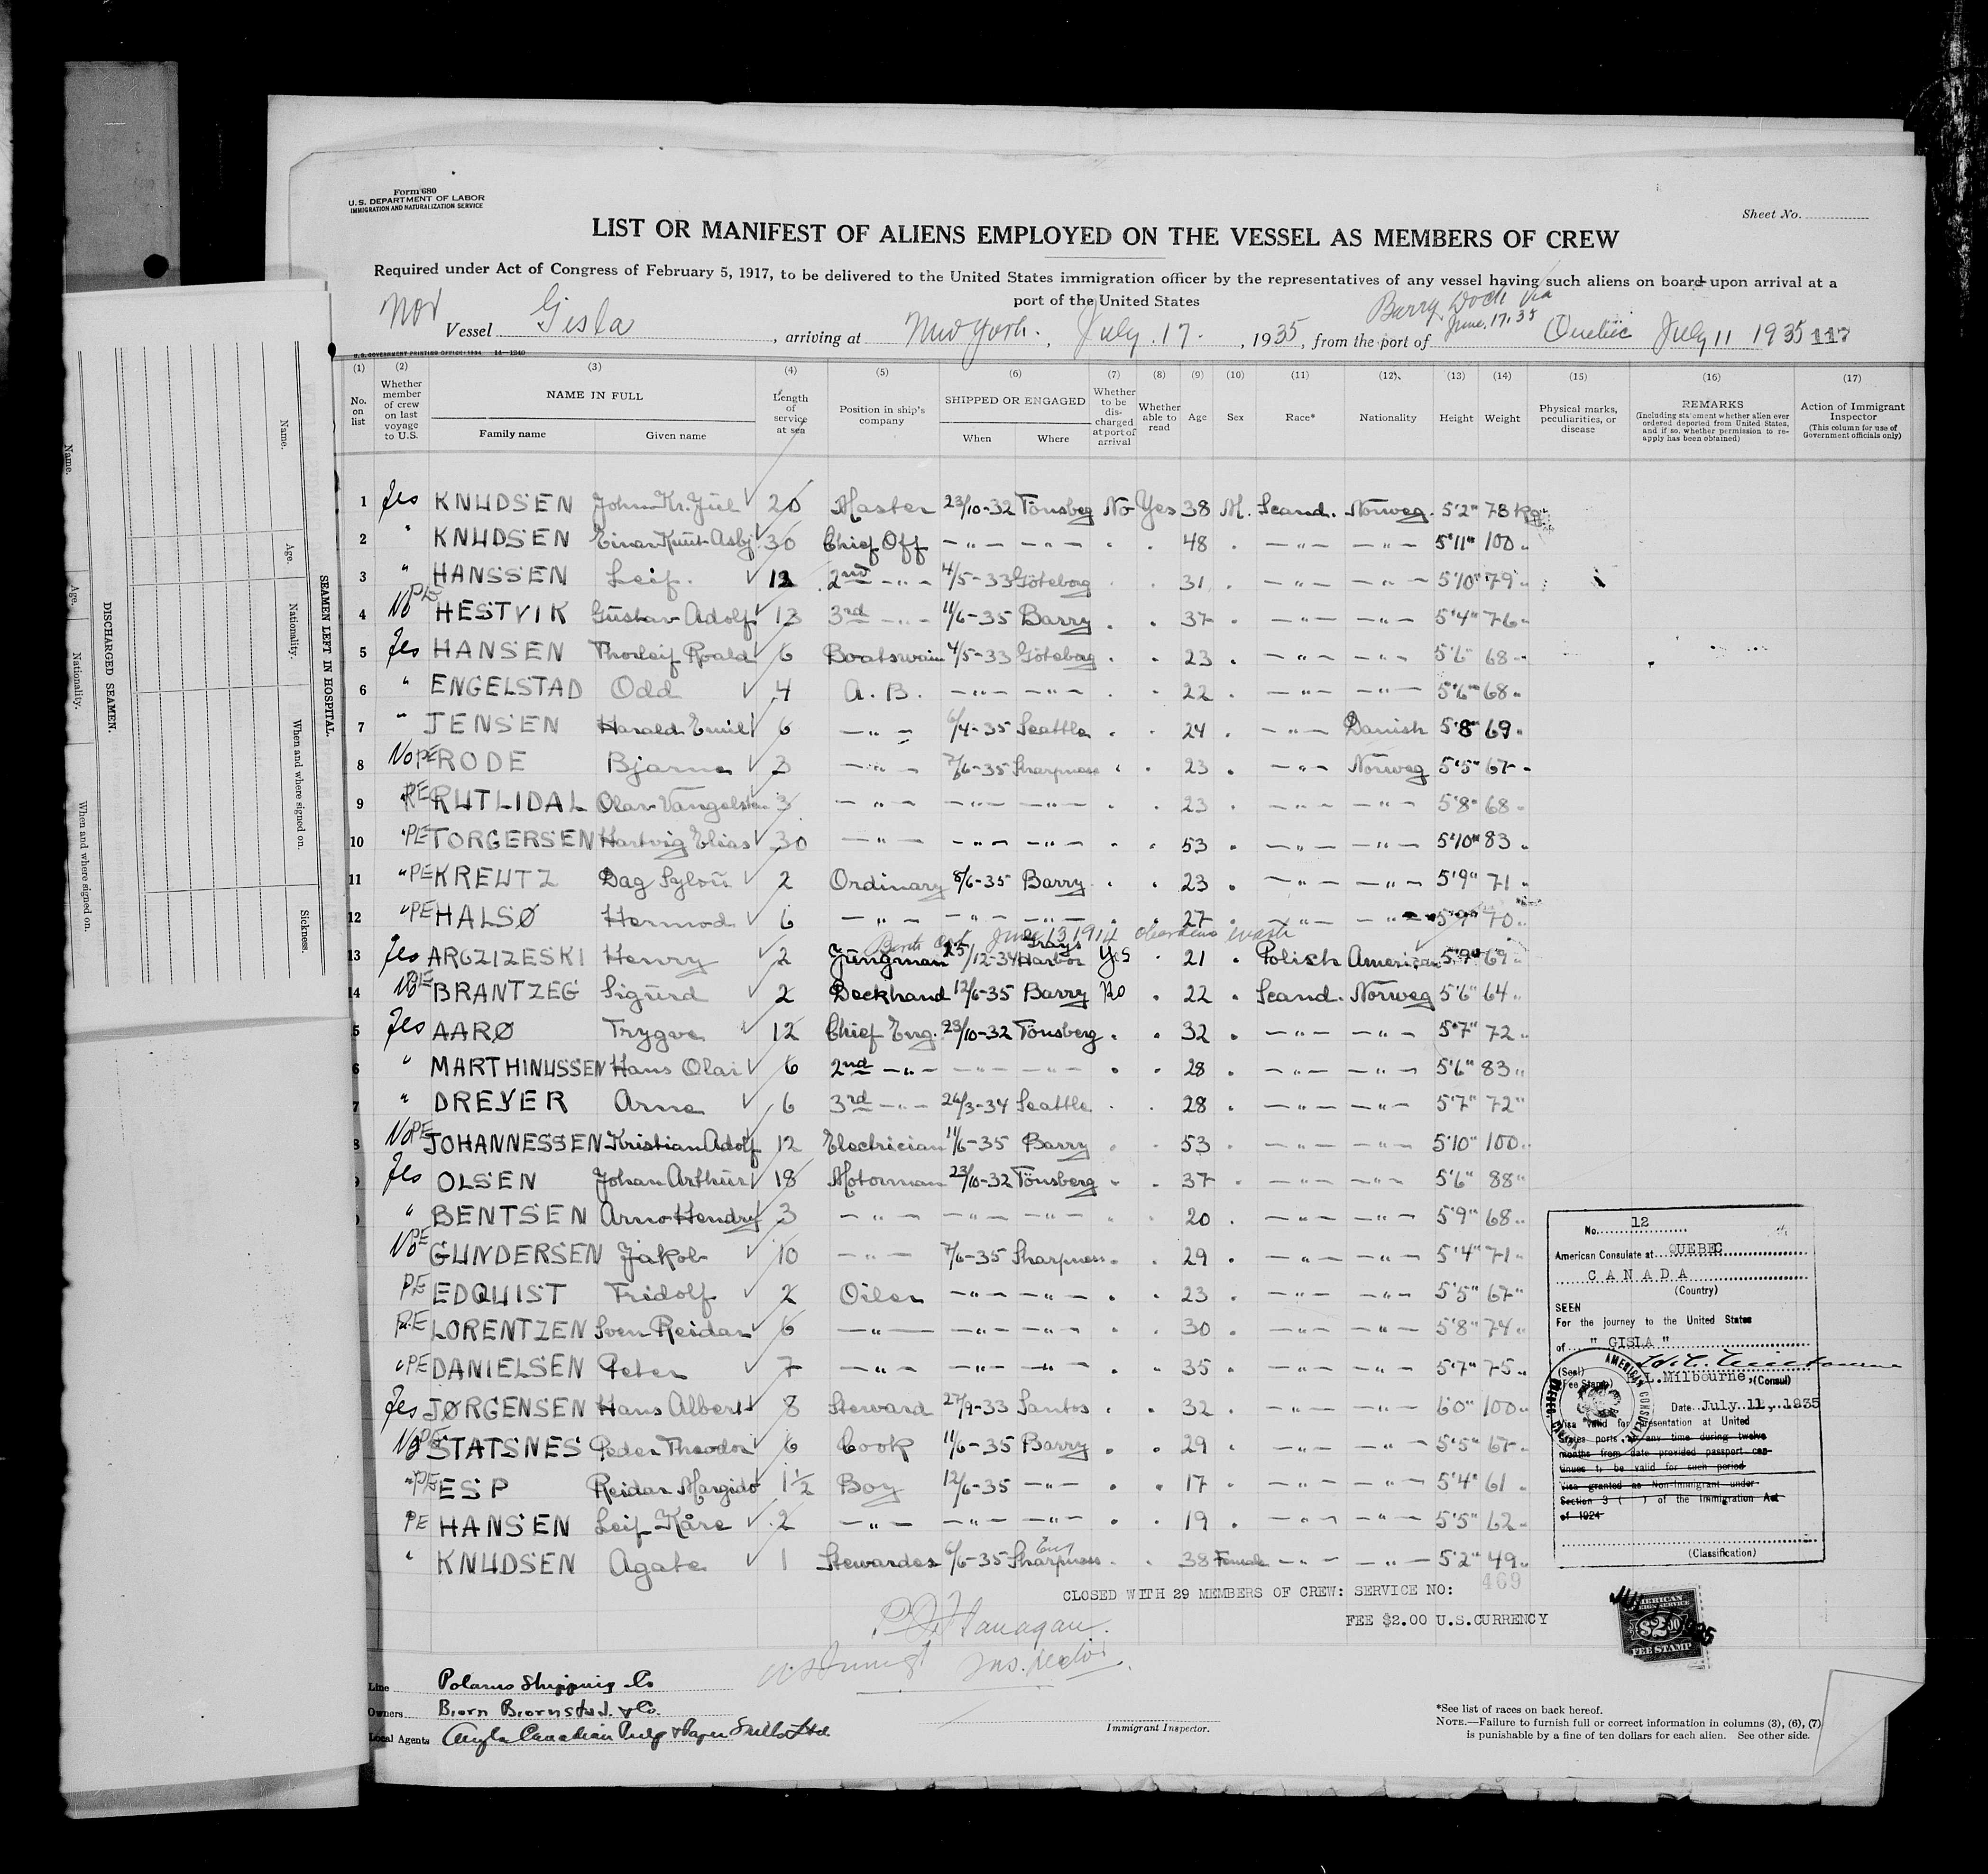 Form 680
U.S. DEPARTMENT OF LABOR
IMMIGRATION AND NATURALIZATION SERVICE
Sheet No.
LIST OR MANIFEST OF ALIENS EMPLOYED ON THE VESSEL AS MEMBERS OF CREW
Required under Act of Congress of February 5, 1917, to be delivered to the United States immigration officer by the representatives of any vessel having such aliens on board upon arrival at a
port of the United States
Nor Vessel Gisla, arriving at New York, July 17, 1935, from the port of Barry Dock Via June, 17, 35 Quebec July 11 1935 117
U.S. GOVERNMENT PRINTING OFFICE: 1934 14—1240
(1) (2) (3) (4) (5) (6) (7) (8) (9) (10) (11) (12) (13) (14) (15) (16) (17)
No. on list
Whether member of crew on last voyage to U.S.
NAME IN FULL
Family name Given name
Length of service at sea
Position in ship's company
SHIPPED OR ENGAGED
When Where
Whether to be discharged at port of arrival
Whether able to read
Age Sex Race* Nationality Height Weight
Physical marks, peculiarities, or disease
REMARKS
(Including statement whether alien ever ordered deported from United States, and if so, whether permission to reapply has been obtained)
Action of Immigrant Inspector
(This column for use of Government officials only)
1 Yes KNUDSEN John Kr. Juel 20 Master 23/10-32 Tönsberg No Yes 38 M. Scand. Norweg. 5'2" 73 kg
2 " KNUDSEN Einar Knut Asbj. 30 Chief Off — " — — " — . . 48 . — " — — " — 5'11" 100 "
3 " HANSSEN Leif. 12 2nd — " — 4/5-33 Göteborg . . 31 . — " — — " — 5'10" 79 "
4 No PE HESTVIK Gustav Adolf 13 3rd — " — 11/6-35 Barry . . 37 . — " — — " — 5'4" 76 "
5 Yes HANSEN Thorleif Roald 6 Boatswain 4/5-33 Göteborg . . 23 . — " — — " — 5'6" 68 "
6 " ENGELSTAD Odd 4 A.B. — " — — " — . . 22 . — " — — " — 5'6" 68 "
7 " JENSEN Harald Emil 6 — " — 6/4-35 Seattle . . 24 . — " — Danish 5'8" 69 "
8 No PE RODE Bjarne 3 — " — 7/6-35 Sharpness . . 23 . — " — Norweg 5'5" 67 "
9 " PE RUTLIDAL Olav 3 — " — — " — — " — . . 23 . — " — — " — 5'8" 68 "
10 " PE TORGERSEN Hartvig Elias 30 — " — — " — — " — . . 53 . — " — — " — 5'10" 83 "
11 " PE KREUTZ Dag 2 Ordinary 8/6-35 Barry . . 23 . — " — — " — 5'9" 71 "
12 " PE HALSØ Hermod 6 — " — — " — — " — . . 27 . — " — — " — 5'9" 70 "
June 13 1914 Aberdeen Wash
13 Yes ARGZIZESKI Henry 2 Jungman 25/12-34 Grays Harbor Yes . 21 . Polish American 5'9" 69 "
14 No PE BRANTZEG Sigurd 2 Deckhand 12/6-35 Barry No . 22 . Scand. Norweg 5'6" 64 "
5 Yes AARØ Trygve 12 Chief Eng. 23/10-32 Tönsberg . . 32 . — " — — " — 5'7" 72 "
6 " MARTHINUSSEN Hans Olai 6 2nd — " — — " — — " — . . 28 . — " — — " — 5'6" 83 "
7 " DREYER Arne 6 3rd — " — 26/3-34 Seattle . . 28 . — " — — " — 5'7" 72 "
8 No PE JOHANNESSEN Kristian Adolf 12 Electrician 11/6-35 Barry . . 53 . — " — — " — 5'10" 100 "
9 Yes OLSEN Johan Arthur 18 Motorman 23/10-32 Tönsberg . . 37 . — " — — " — 5'6" 88 "
" BENTSEN Arno Hendry 3 — " — — " — — " — . . 20 . — " — — " — 5'9" 68 "
No PE GUNDERSEN Jakob 10 — " — 7/6-35 Sharpness . . 29 . — " — — " — 5'4" 71 "
PE EDQUIST Fridolf 2 Oiler — " — — " — . . 23 . — " — — " — 5'5" 67 "
PE LORENTZEN Sven Reidar 6 — " — — " — — " — . . 30 . — " — — " — 5'8" 74 "
" PE DANIELSEN Peter 7 — " — — " — — " — . . 35 . — " — — " — 5'7" 75 "
Yes JØRGENSEN Hans Albert 8 Steward 27/9-33 Santos . . 32 . — " — — " — 6'0" 100 "
No PE STATSNES Peder Theodor 6 Cook 11/6-35 Barry . . 29 . — " — — " — 5'5" 67 "
" PE ESP Reidar Margido 1½ Boy 12/6-35 — " — . . 17 . — " — — " — 5'4" 61 "
PE HANSEN Leif Kåre 2 — " — — " — — " — . . 19 . — " — — " — 5'5" 62 "
" KNUDSEN Agate 1 Stewardes 6/6-35 Sharpness Eng . . 38 Female — " — — " — 5'2" 49 "
CLOSED WITH 29 MEMBERS OF CREW: SERVICE NO: 469
FEE $2.00 U.S.CURRENCY
P. Flanagan.
Line Polarus Shipping Co
Owners Biorn Biornstad & Co.
Local Agents Anglo Canadian Pulp & Paper Mills Ltd
Immigrant Inspector.
*See list of races on back hereof.
NOTE.—Failure to furnish full or correct information in columns (3), (6), (7)
is punishable by a fine of ten dollars for each alien. See other side.
No. 12
American Consulate at QUEBEC
CANADA
(Country)
SEEN
For the journey to the United States
of " GISLA "
(Seal)
(Fee Stamp)
L. Milbourne, (Consul)
Date July 11, 1935
Visa valid for presentation at United
States ports at any time during twelve
months from date provided passport con-
tinues to be valid for such period
Visa granted as Non-Immigrant under
Section 3 ( ) of the Immigration Act
of 1924
(Classification)
AMERICAN CONSULATE
QUEBEC, CANADA
AMERICAN
FOREIGN SERVICE
$2.00
FEE STAMP
SEAMEN LEFT IN HOSPITAL.
Name. Age. Nationality. When and where signed on. Sickness.
DISCHARGED SEAMEN.
Name. Age. Nationality. When and where signed on.